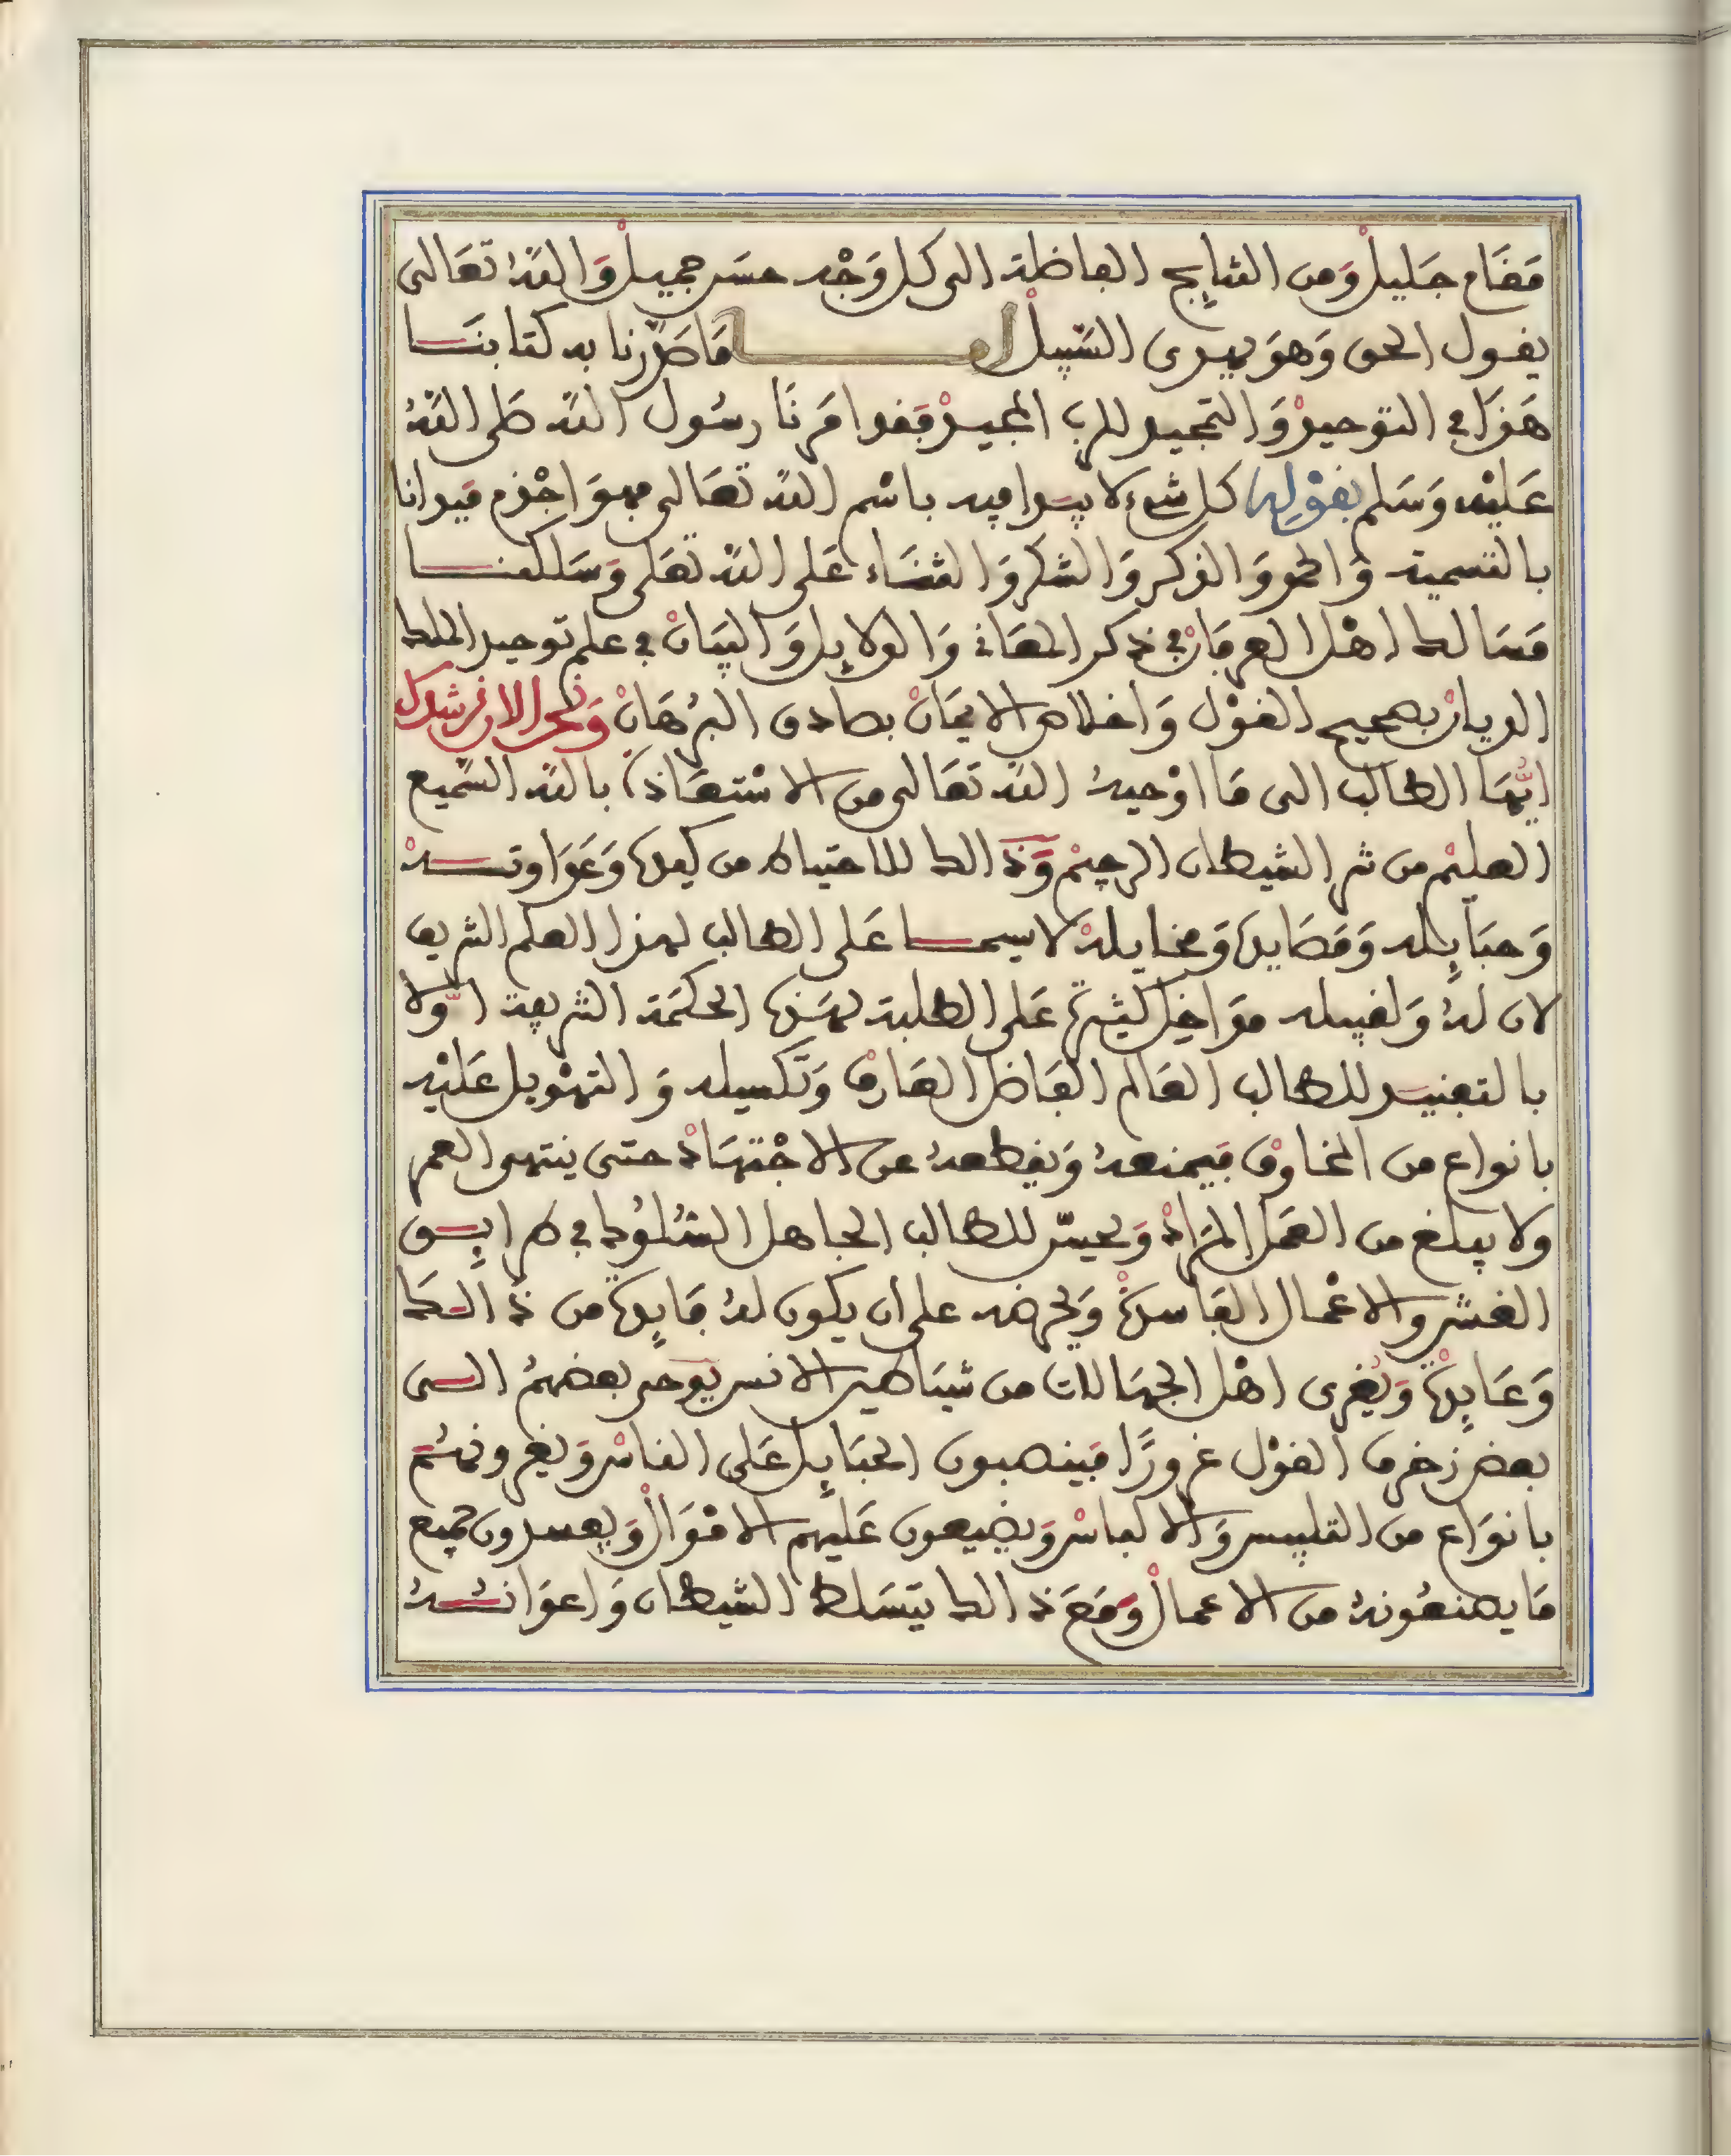 مَقَام جَليلْ وَمن النتايج الفاضلة الى كل وَجْه حسَن جميلْ وَاللهُ تعَالى
يقول الحق وَهوَ يهدى السَّبيلْ امـا مَا صَدّرنا به كتابنَـا
هَذَا في التوْحيدْ وَالتمجيد للرب المجيدْ فَقد امَرنَا رسُول الله صَلى اللهُ
عَليْه وَسَلم بقوْلِه كل شىء لا يبدا فيه باسْم الله تعَالى فهوَ اجْذم فبدانا
بالتسمية وَالحمد وَالذكر وَالشكر وَالثنَاء عَلى الله تعَلى وَسَلكنـا
مَسَالك اهْل العرفَانْ في ذكر المعَانى وَالدلايل وَالبيَانْ في علم توحيد الملك
الديانْ بصحيح القوْل وَاخلاص الايمَانْ بصادق البرُهَانْ وَنحن الان نرشدك
ايُّهَا الطالب الى مَا اوْجبهُ الله تعَالى من الاسْتعَاذة بالله السَّميع
العليْم من شر الشيطان الرجيْم وَذَالك للاحتياط من كيده وَعَدَاوتـه
وَحبَايله وَمَصَايده وَمخايلهْ لاسيمـا عَلى الطالب لهذا العلم الشريف
لان لهُ وَلقبيله مدَاخِل كثيرة عَلى الطلبة لهَذه الحكمَة الشريفة اوَّلا
بالتفنيـد للطالب العَالم الفَاضل العَارف وَتكسيله وَالتهْويل عَليْه
بانواع من المخاوفْ فَيمنعهُ وَيقطعهُ عن الاجْتهَادْ حتى ينتهى العمر
ولا يبلغ من العمَل المرَادْ وَيحسّن للطالب الجاهل السُلوُك في طرايـق
الغش والاعْمال الفَاسدة وَيحرضه على ان يكون لهُ فَايدة من ذَالـكَ
وَعَايدة وَيُغرى اهْل الجهَالات من شيَاطين الانس يوحى بعضهمُ الـى
بعض زخرف القوْل غرورًا فَينصبون الحبَايل عَلى الناسْ وَيغرونهُـم
بانوَاع من التلبيس وَالالباسْ وَيضيعون عَليهم الامْوَالْ وَيفسدون جميع
مَا يصنعُونهُ من الاعمالْ وَمَعَ ذَالك يتسَلط الشيطان وَاعوَانـُـهُ